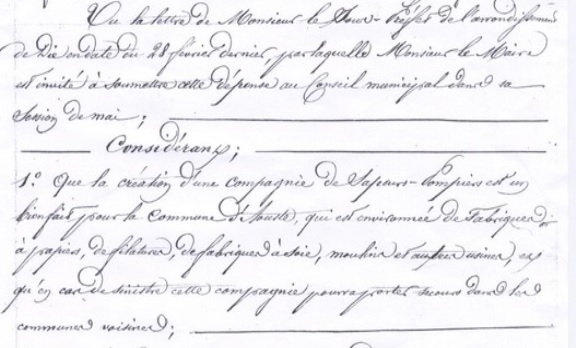 Vu la lettre de Monsieur le Sous-Préfet de l'arrondissement
de Die en date du 28 février dernier, par laquelle Monsieur le Maire
est invité à soumettre cette dépense au Conseil municipal dans sa
session de mai;
Considérant;
1.° Que la création d'une compagnie de Sapeurs-Pompiers est un
bienfait pour la Commune d'Aouste, qui est environnée de Fabriques
à papiers, de filatures, de fabriques à soie, moulins et autres usines, et
qu'en cas de sinistre cette compagnie pourra porter secours dans les
communes voisines;